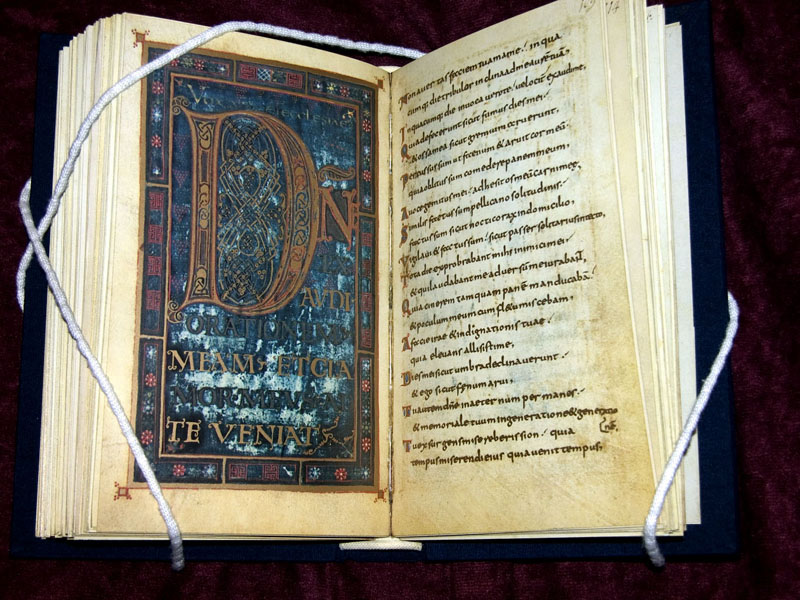 DÑE
XAUDI
ORATIONEM
MEAM· ET CLA
MOR MEUS AD
TE VENIAT
Non avertas faciem tuam a me· in qua
cumq; die tribulor inclina ad me aurē tuā,
In quacumq; die invocavero te· velociter exaudi me,
Quia defecerunt sicut fumus dies mei·
& ossa mea sicut gremium cruerunt,
Percussus sum ut foenum & aruit cor meū·
quia oblitus sum comedere panem meum,
A voce gemitus mei· adhesit os meū carni meę,
Similis factus sum pellicano solitudinis·
factus sum sicut nocticorax in domicilio,
Vigilavi & factus sum· sicut passer solitarius in tecto,
Tota die exprobrabant mihi inimici mei·
& qui laudabant me adversū me iurabant,
Quia cinerem tamquam panē manducabā·
& poculum meum cum fl&u miscebam,
A facie irae & indignationis tuae·
quia elevans allisisti me,
Dies mei sicut umbra declinaverunt·
& ego sicut fenum arui,
Tu autem dn̄e in aeternum permanes·
& memoriale tuum in generatione & generatio
nē,
Tu exsurgens misereberis sion· quia
tempus miserendi eius quia venit tempus,